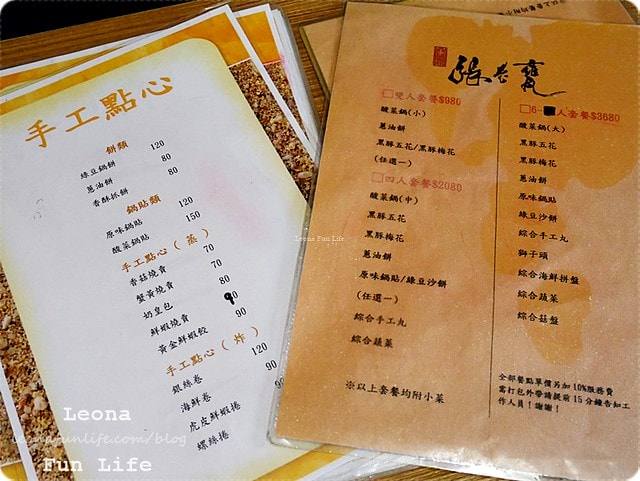 手工點心
餅類
綠豆鍋餅 120
蔥油餅 80
香酥抓餅 80
鍋貼類
原味鍋貼 120
酸菜鍋貼 150
手工點心(蒸)
香菇燒賣 70
蟹黃燒賣 70
奶皇包 80
鮮蝦燒賣 90
黃金鮮蝦餃 90
手工點心(炸)
銀絲卷 120
海鮮卷 90
虎皮鮮蝦捲 120
螺絲捲 90
雙人套餐$980
酸菜鍋(小)
蔥油餅
黑豚五花/黑豚梅花
(任選一)
四人套餐$2080
酸菜鍋(中)
黑豚五花
黑豚梅花
蔥油餅
原味鍋貼/綠豆沙餅
(任選一)
綜合手工丸
綜合蔬菜
※以上套餐均附小菜
6-人套餐$3680
酸菜鍋(大)
黑豚五花
黑豚梅花
蔥油餅
原味鍋貼
綠豆沙餅
綜合手工丸
獅子頭
綜合海鮮拼盤
綜合蔬菜
綜合菇盤
全部餐點單價另加10%服務費
需打包外帶請提前15分鐘告知工
作人員!謝謝!
Leona Fun Life
Leona
leonafunlife.com/blog
Fun Life